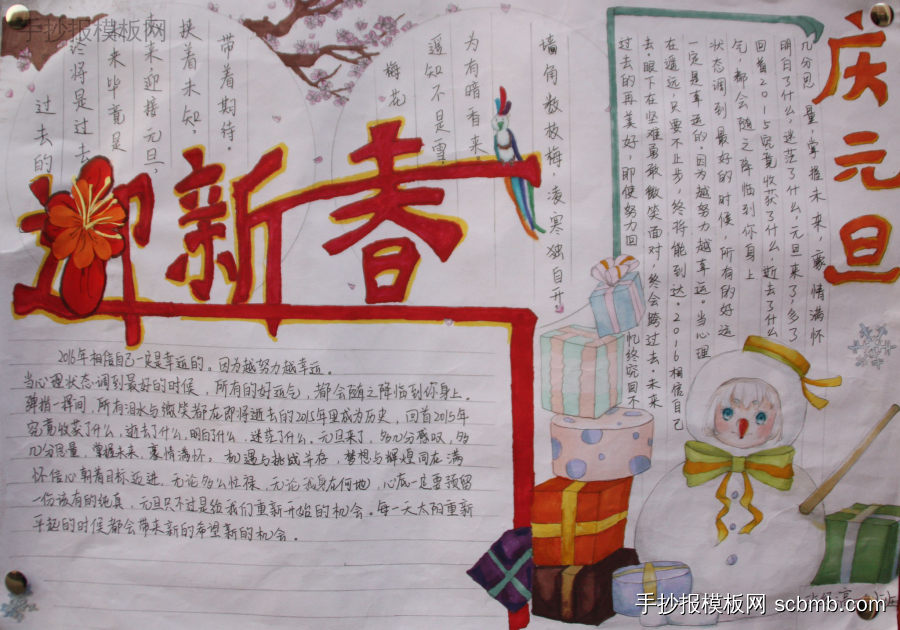 手抄报模板网
庆元旦
迎新春
几分思量,掌握未来,豪情满怀
明白了什么,迷茫了什么,元旦来了,多了
回首2015究竟收获了什么,逝去了什么
气,都会随之降临到你身上
状态调到最好的时候,所有的好运
一定是幸运的。因为越努力越幸运。当心理
在遥远,只要不止步,终将能到达。2016相信自己
去。眼下在坚难勇敢微笑面对,终会跨过去。未来
过去的再美好,即使努力回忆终究回不
墙角数枝梅,凌寒独自开
为有暗香来。
遥知不是雪,
梅花
带着期待。
扶着未知。
来迎接元旦,
未来毕竟是
将是过去
过去的
2016年相信自己一定是幸运的。因为越努力越幸运。
当心理状态调到最好的时候,所有的好运气,都会随之降临到你身上。
弹指一挥间,所有泪水与微笑都在即将逝去的2015年里成为历史,回首2015年
究竟收获了什么,逝去了什么,明白了什么,迷茫了什么,元旦来了,多几分感叹,多
几分思量,掌握未来,豪情满怀;机遇与挑战并存,梦想与辉煌同在满
怀信心朝着目标迈进。无论多么忙碌,无论我身在何地,心底一定要预留
一份该有的纯真,元旦只不过是给我们重新开始的机会。每一天太阳重新
升起的时候都会带来新的希望新的机会。
手抄报模板网 scbmb.com